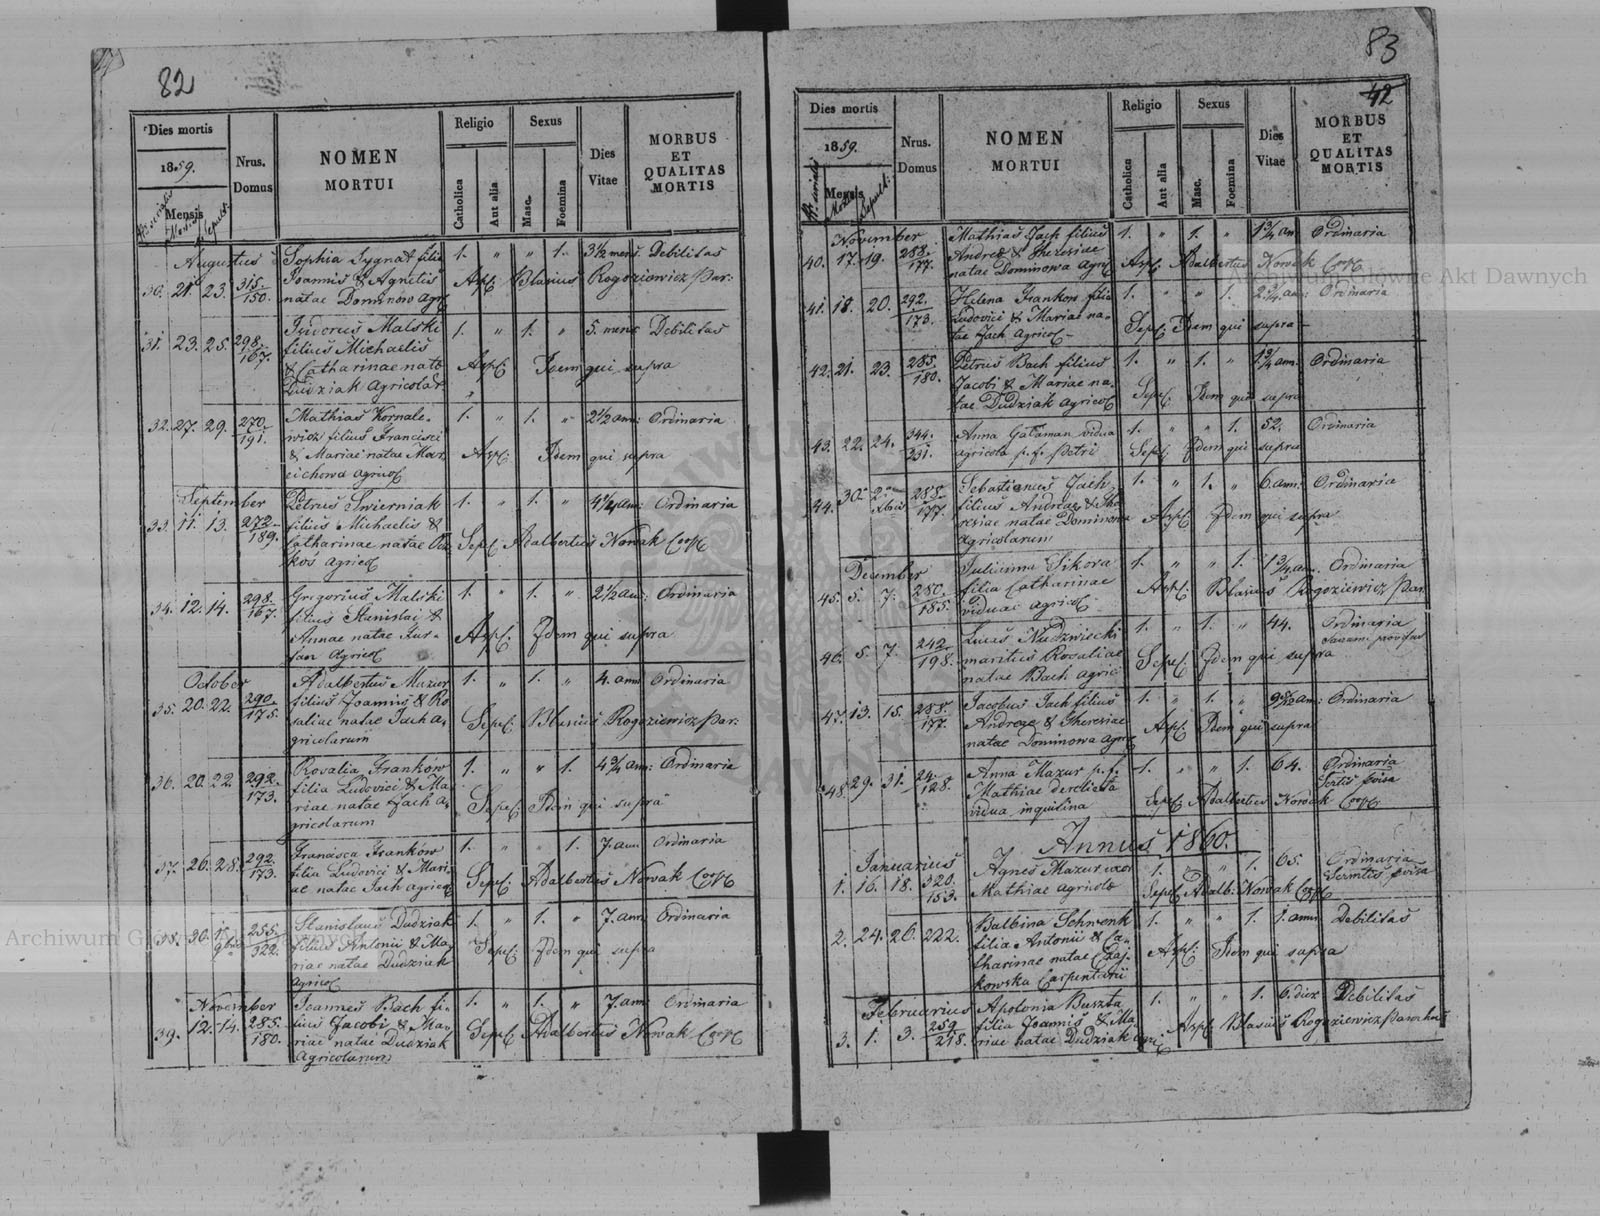 82
Dies mortis
1859.
Nrus. Domus
NOMEN
MORTUI
Religio
Catholica
Aut alia
Sexus
Masc.
Foemina
Dies
Vitae
MORBUS
ET
QUALITAS
MORTIS
Mensis
Augustus
30. 21. 23. 315. 150.
Sophia Sygnat filia 1. " " 1. 3 1/2 mens Debilitas
Joannis & Agnetis
natae Dominow Agr
Blasius Rogoziewicz Par:
31. 23. 25. 298. 167.
Isidorus Malski 1. " 1. " 5. mens Debilitas
filius Michaelis
& Catharinae nate
Dudziak Agricolar
Idem qui supra
32. 27. 29. 270. 191.
Mathias Kornale- 1. " 1. " 2 1/2 ann: Ordinaria
wicz filius Francisci
& Mariae natae Mar
cichowa Agricol
Idem qui supra
September
33. 11. 13. 272. 189.
Petrus Swierniak 1. " 1. " 4 1/4 an: Ordinaria
filius Michaelis &
Catharinae natae
Agricol
Sepel. Adalbertus Nowak Coop
34. 12. 14. 298. 167.
Gregorius Malski 1. " 1. " 2 1/2 an: Ordinaria
filius Stanislai &
Annae natae Fur-
Agricol
Idem qui supra
October
35. 20. 22. 290. 175.
Adalbertus Mazur 1. " 1. " 4. ann Ordinaria
filius Joannis & Ro
saliae natae Jach A-
gricolarum
Sepel: Blasius Rogoziewicz Par:
36. 20. 22. 292. 173.
Rosalia Frankow 1. " " 1. 4 3/4 ann: Ordinaria
filia Ludovici & Ma
riae natae Jach A-
gricolarum
Sepel: Idem qui supra
37. 26. 28. 292. 173.
Francisca Frankow 1. " " 1. 7. ann Ordinaria
filia Ludovici & Mari-
ae natae Jach Agricol
Sepel: Adalbertus Nowak Coop
38. 30. 1. 9bris 255. 322.
Stanislaus Dudziak 1. " 1. " 7. ann Ordinaria
filius Antonii & Ma-
riae natae Dudziak
Agricol
Sepel: Idem qui supra
November
39. 12. 14. 285. 180.
Joannes Bach fi- 1. " 1. " 7. ann Ordinaria
lius Jacobi & Ma-
riae natae Dudziak
Agricolarum
Sepel: Adalbertus Nowak Coop
83
42
Dies mortis
1859.
Nrus.
Domus
NOMEN
MORTUI
Religio
Catholica
Aut alia
Sexus
Masc.
Foemina
Dies
Vitae
MORBUS
ET
QUALITAS
MORTIS
Mensis
November
40. 17. 19. 288. 177.
Mathias Jach filius 1. " 1. " 1 3/4 an Ordinaria
Andreae & Theresiae
natae Dominowa Agric
Adalbertus Nowak Coop
41. 18. 20. 292. 173.
Helena Frankow filia 1. " " 1. 2 3/4 an: Ordinaria
Ludovici & Mariae na-
tae Jach Agricol
Sepel: Idem qui supra
42. 21. 23. 285. 180.
Petrus Bach filius 1. " 1. " 1 3/4 ann: Ordinaria
Jacobi & Mariae na-
tae Dudziak Agricol
Sepel: Idem qui supra
43. 22. 24. 344. 331.
Anna Gataman vidua 1. " " 1. 52. Ordinaria
agricola p. f. Petri
Sepel: Idem qui supra
44. 30. 2. Xbris 288. 177.
Sebastianus Jach 1. " 1. " 6. ann: Ordinaria
filius Andreae & The
resiae natae Dominowa
Agricolarum
Idem qui supra
December
45. 5. 7. 280. 185.
Julianna Sikora 1. " " 1. 1 3/4 an. Ordinaria
filia Catharinae
viduae Agricol
Blasius Rogoziewicz Par
46. 5. 7. 242. 198.
Lucas Niedzwiecki 1. " 1. " 44. Ordinaria
maritus Rosaliae
natae Bach Agric
Sepel: Idem qui supra
47. 13. 15. 288. 177.
Jacobus Jach filius 1. " 1. " Ordinaria
Andreae & Theresiae
natae Dominowa Agric
Idem qui supra
48. 29. 31. 24. 128.
Anna Mazur p. f. 1. " " 1. 64. Ordinaria
Mathiae derelicta
vidua inquilina
Sepel: Adalbertus Nowak Coop
Annus 1860.
Januarius
1. 16. 18. 320. 153.
Agnes Mazur uxor 1. " " 1. 65. Ordinaria
Mathiae Agricola
Sepel: Adalb: Nowak Coop
2. 24. 26. 222.
Balbina Schwenk 1. " " 1. 1. ann Debilitas
filia Antonii & Ca-
tharinae natae Czaj-
kowska Carpentarii
Idem qui supra
Februarius
3. 1. 3. 259. 218.
Apolonia Buszta 1. " " 1. 6. dier Debilitas
filia Joannis & Ma-
riae natae Dudziak Agric
Blasius Rogoziewicz Parochus
Archiwum Główne Akt Dawnych
Archiwum Główne Akt Dawnych